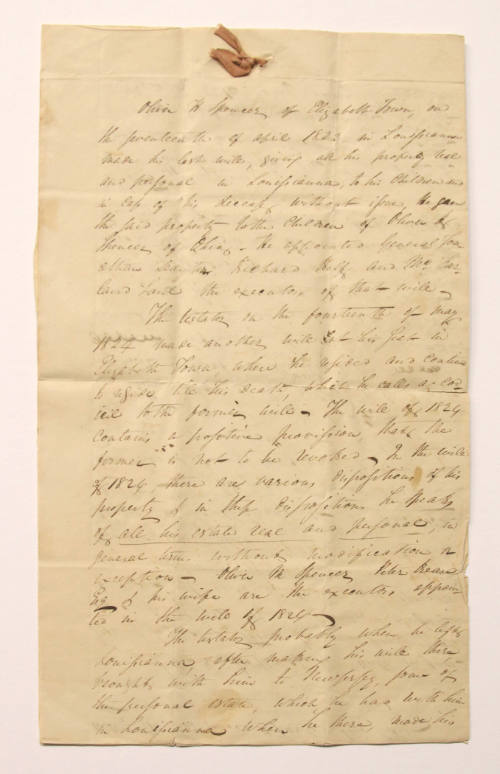 Oliver H Spencer of Elizabeth Town, on
the seventeenth of april 1823 in Louissianna
made his last will, giving all his property real
and personal in Louissianna, to his Children and
in case of his decease without issue, he gave
the said property to the Children of Oliver
Spencer of Ohio - He appointed General
Richard and
the executors of that will -
The testator on the fourteenth of may
1824 made another will at his seat in
Elizabeth Town where he resided and continued
to reside till his death, which he calls a cod
icil to the former will - The will of 1824
contains a positive provission that the
former is not to be revoked - In the will
of 1824, there are various dispositions of his
property & in these dispositions he speaks
of all his estate real and personal, in
general terms without modification or
exception - Oliver M Spencer
Esq & his wife are the executors appoin
ted in the will of 1824
The testator probably when he left
Louissianna after making his will there
brought with him to New Jersey, some of
the personal estate, which he has with him
in Louissianna when he there, made his